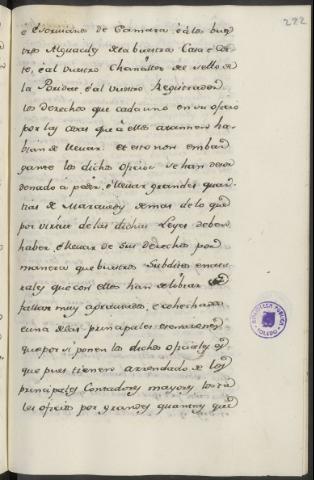 222
é Escrivanos de Camara, é á los bues
tros Alguaciles de la buestra Casa é Cor
te, é al vuestro Chanciller del sello de
la Poridat, é al vuestro Registrador
los derechos que cada uno en su oficio
por las cosas que á ellos atannen ha
bian de llevar. et esto non embar
gante los dichos oficios se han desor
denado á pedir, é llevar grandes quan
tias de Maravedis demas de lo que
por virtud de las dichas Leyes deben
haber, é llevar de sus derechos por
manera que buestros Subditos é natu
rales que con ellos han de librar se
fallan muy agraviados, é cohechados
é una de las principales escusaciones
que por sí ponen los dichos oficiales es
que pues tienen arrendado de los
principales Contadores mayores los ta
les oficios por grandes quantias que
BIBLIOTECA PUBLICA
TOLEDO